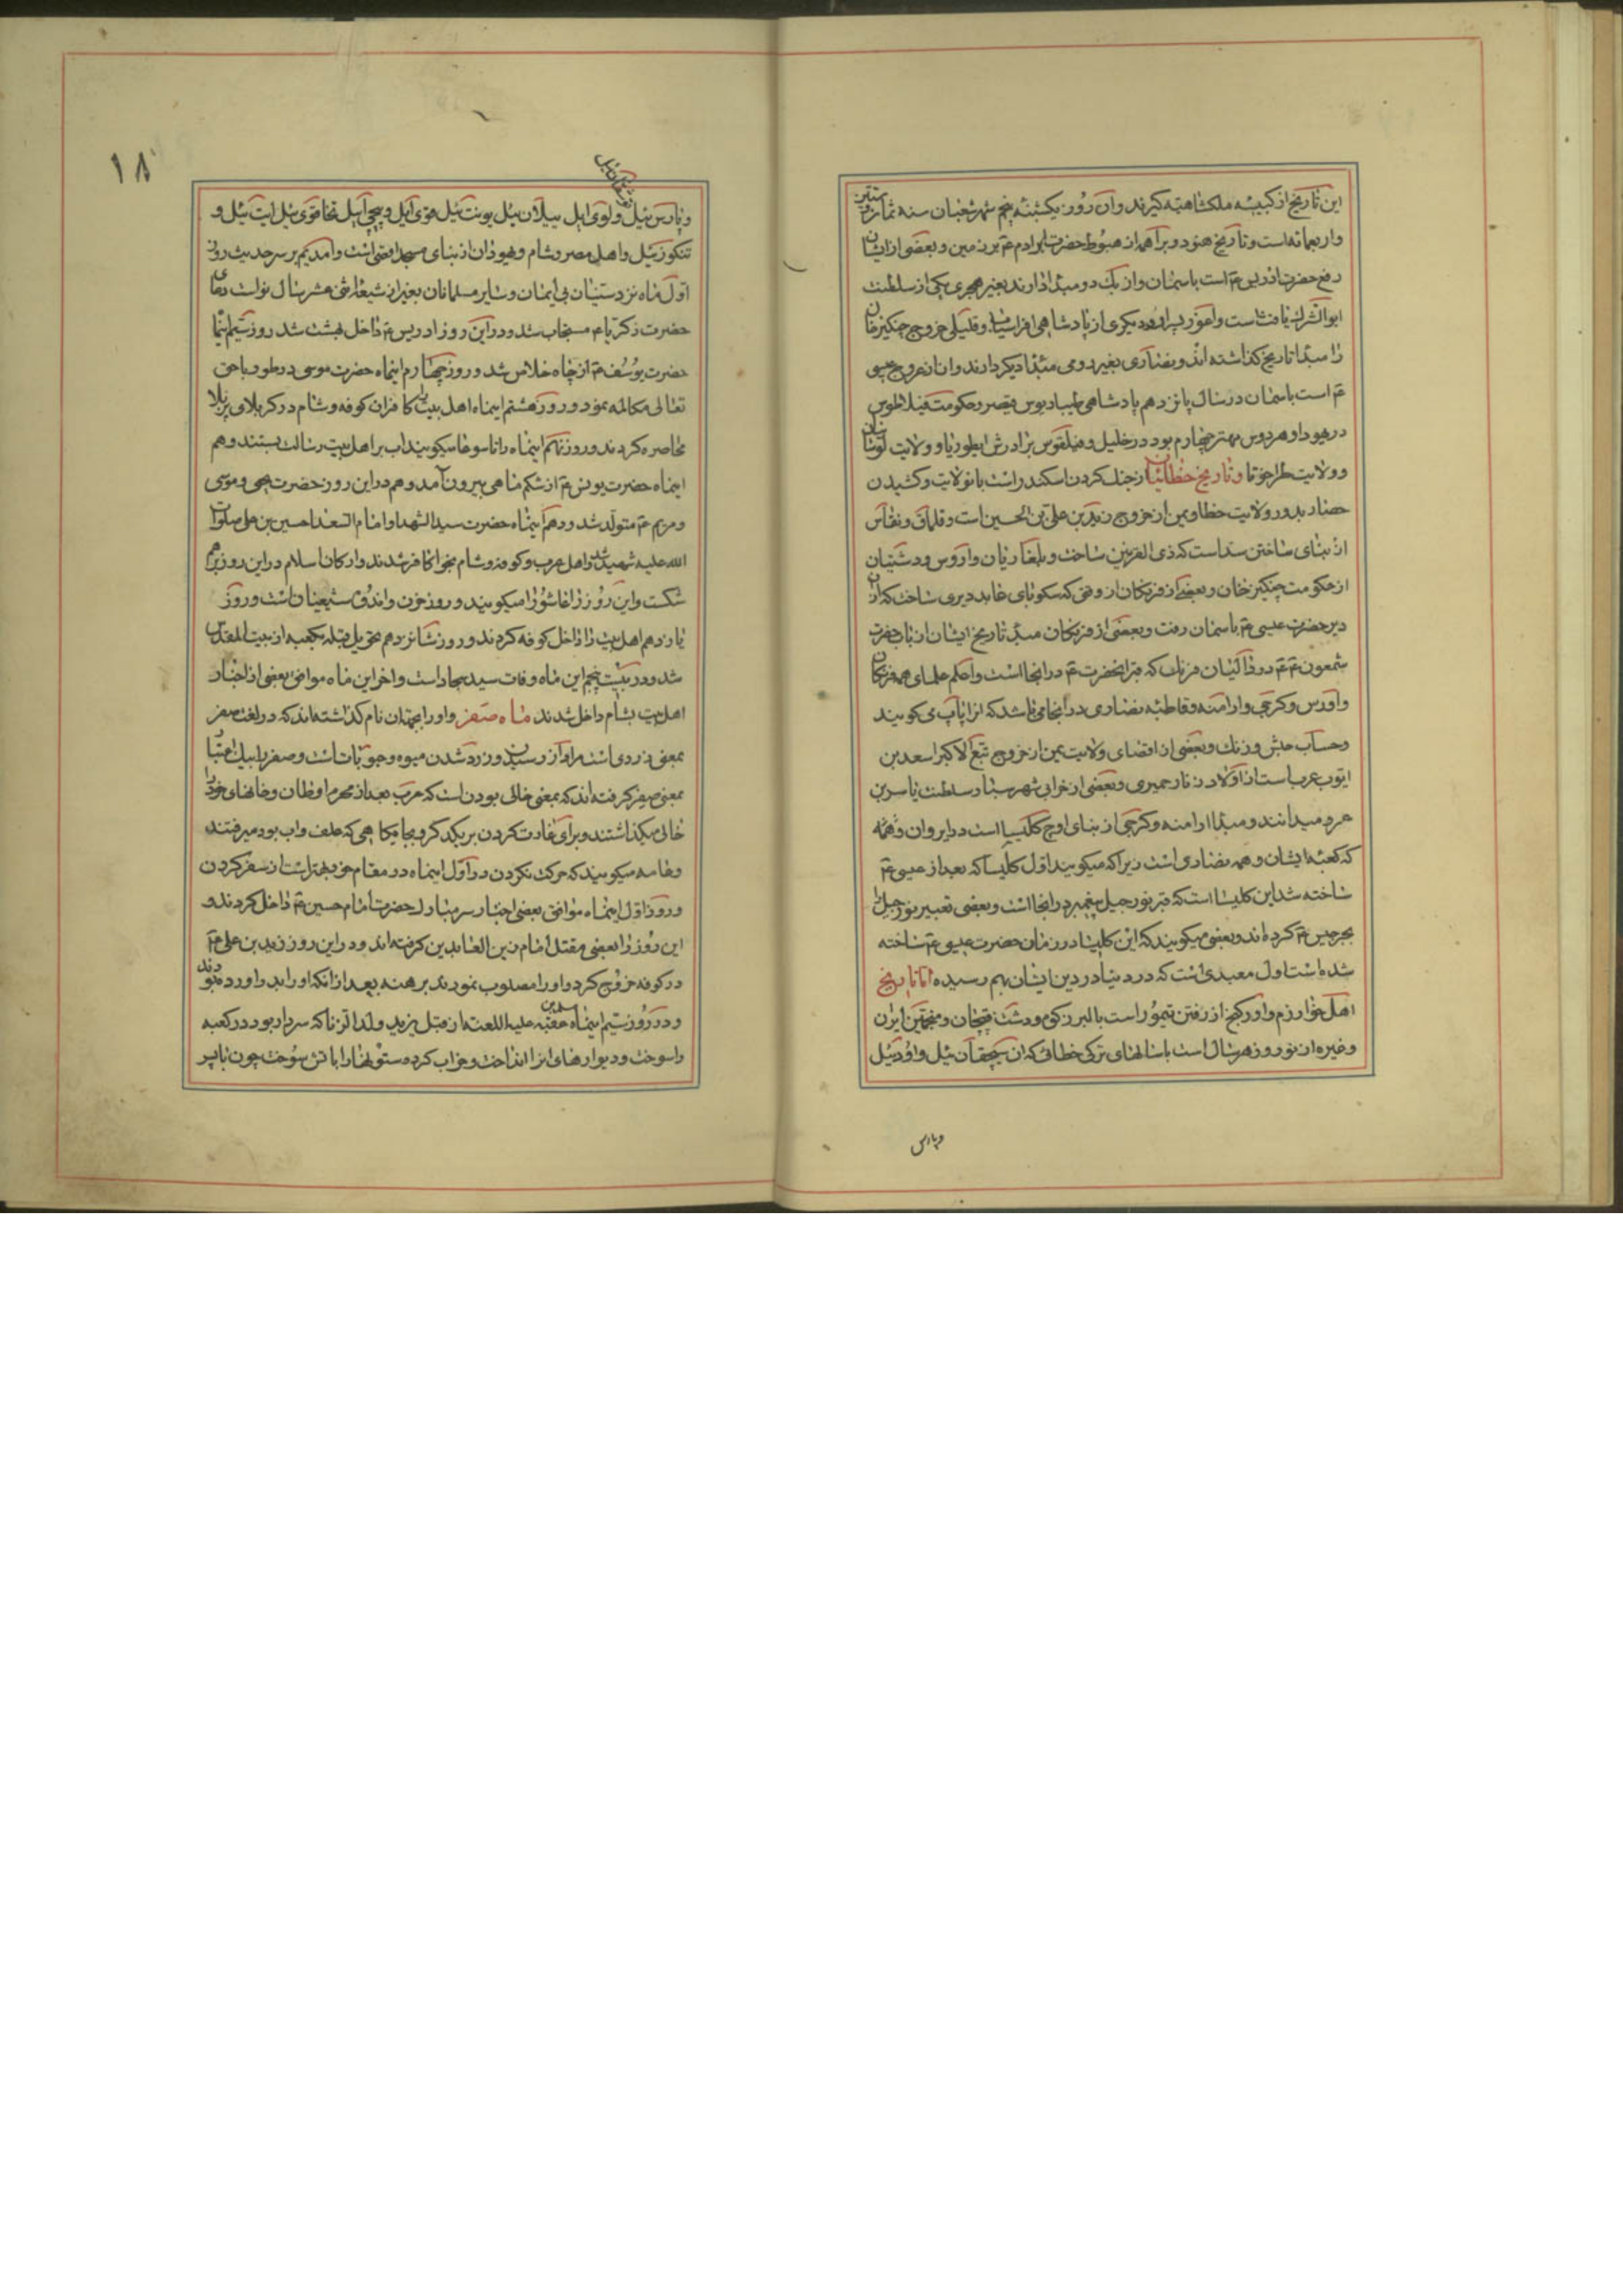 این تاریخ از کبیسه ملکشاهیه گیرند و ان روز یکشنبه پنجم شهر شعبان سنه ثمان و ستین
و اربعمائه است و تاریخ هنود و براهمه از هبوط حضرت ابو ادم ع م بر زمین و بعضی از ایشان
رفع حضرت ادریس ع م است باسمان و از بک دو مبدا دارند بغیر هجری یکی از سلطنت
ابو الترک یافث است و اغوز پسر او و دیگری از پادشاهی افراسیاب و قلیلی خروج چنگیزخان
را مبدا تاریخ گذاشته اند و نصاری بغیر رومی مبدا دیگر دارند و ان از عروج عیسی
ع م است باسمان در سال پانزدهم پادشاهی طیباریوس قیصر و حکومت فیلاطوس
در یهودا و هردوس مهتر چهارم بود در خلیل و فیلفوس برادرش ایطوریا و ولایت
و ولایت طراخوتا و تاریخ خطائیان از جنک کردن اسکندر است بانولایت و کشیدن
حصار بدور ولایت خطا و یمن از خروج زید بن علی بن الحسین است و قلماق و نقاس
از بنای ساختن سد است که ذی القرنین ساخت و بلغاریان و اروس و دشتیان
از حکومت چنگیز خان و بعضی از فرنکان از وقتی که سکوبای عابد دیری ساخت که از ان
دیر حضرت عیسی ع م باسمان رفت و بعضی از فرنکان مبدا تاریخ ایشان از باب حضرت
شمعون ع م در دالیان فرنک که قبر انحضرت ع م در انجا است و احکم علمای همه فرنکان
و اورس و کرجی و ارامنه و قاطبه نصاری در انجا می باشد که انرا پاپ می کویند
و حساب حبش و زنک و بعضی از اقصای ولایت یمن از خروج تبع الاکبر اسعد بن
ایوب عرب است از اولاد زنار حمیری و بعضی از خرابی شهر سبا و سلطنت یاسر بن
عمرو میدانند و مبدا ارامنه و کرجی از بنای اوچ کلیسیا است در ایروان و همه
که کعبه ایشان و همه نصاری است زیرا که میکویند اول کلیسا که بعد از عیسی ع م
ساخته شد این کلیسا است که قبر نور جبیل پیغمبر در انجا است و بعضی تعبیر نور جبیل را
بجرجیس ع م کرده اند و بعضی میکویند که این کلیسا در زمان حضرت عیسی ع م ساخته
شده است اول معبدی است که در دنیا در دین ایشان بهم رسیده اما تاریخ
اهل خوارزم و اورکنج از رفتن تیمور است بالبرز کوه و دشت قبچاق و منجمین ایران
و غیره از نوروز هر سال است با سالهای ترکی خطائی که ان سیچقان ئیل و اود ئیل
و پارس
۱۸
و پارس ئیل و لوی ایل ییلان ئیل یونت ئیل قوی ایل و پیچی ایل تخاقوی ئیل ایت ئیل و
تنکوز ئیل و اهل مصر و شام و یهودان از بنای مسجد اقصی است و امدیم بر سر حدیث روز
اول ماه نزد سنیان بی ایمان و سایر مسلمانان بغیر از شیعه اثنی عشر سال نو است دعای
حضرت زکریا ع م مستجاب شد و در این روز ادریس ع م داخل بهشت شد روز سیم اینماه
حضرت یوسف ع م از چاه خلاص شد و روز چهارم اینماه حضرت موسی در طور با حق
تعالی مکالمه نمود و روز هشتم اینماه اهل بیت را کافران کوفه و شام در کربلای پر بلا
محاصره کردند و روز نهم اینماه را تاسوعا میکویند اب بر اهل بیت رسالت بستند و هم
اینماه حضرت یونس ع م از شکم ماهی بیرون آمد و هم در این روز حضرت یحیی و موسی
و مریم ع م متولد شد و دهم اینماه حضرت سید الشهدا و امام السعدا حسین بن علی صلوات
الله علیه شهید شد و اهل عرب و کوفه و شام نجوا کافر شدند و ارکان اسلام در این روز بهم
شکست و این روز را عاشورا میکویند و روز حزن و اندوه شیعیان است و روز
یازدهم اهل بیت را داخل کوفه کردند و روز شانزدهم تحویل قبله بکعبه از بیت المقدس
شد و در بیست پنجم این ماه وفات سید سجاد است و اخر این ماه موافق بعضی از اخبار
اهل بیت بشام داخل شدند ماه صفر و او را بجهة ان نام گذاشته اند که در لغت صفر
بمعنی زردی است مراد از رسیدن و زرد شدن میوه و حبوبات است و صفر را بیک اعتبار
بمعنی صفر گرفته اند که بمعنی خالی بودن است که عرب بعد از محرم اوطان و خانهای خود را
خالی میکذاشتند و برای غارت کردن بر یکدگر و بجایگاهی که علف و اب بود میرفتند
و عامه میکویند که حرکت نکردن در اول اینماه در مقام خود بهتر است از سفر کردن
و روز اول اینماه موافق بعضی اخبار سر مبارک حضرت امام حسین ع م داخل کردند و
این روز را بعضی مقتل امام زین العابدین گرفته اند و در این روز زید بن علی ع م
در کوفه خروج کرد و او را مصلوب نمودند برهنه بعد از انکه او را بدر اورده بودند
و در روز سیم اینماه عقبه علیه اللعنه از قبل یزید ولد الزنا که سردار بود در کعبه
را سوخت و دیوارهای انرا انداخت و خراب کرده ستونها را باتش سوخت چون نایبر